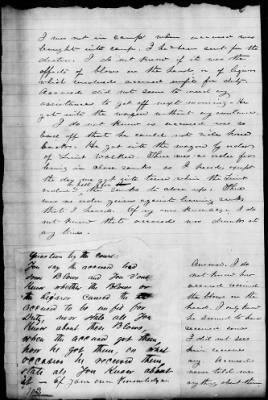 I was not in camp when accused was
brought into camp. I had been sent for the
doctor. I do not know if it was the
effects of blows on the head or of liquor
which rendered accused unfit for duty.
Accused did not seem to need any
assistance to get off next morning. He
got into the wagon without any assistance.
I do not know if accused was so
bad off that he could not ride horse
back. He got into the wagon by order
of Lieut Walker. There was no order for
being in close ranks as I heard, except
the day we got into town when the Lieut
ordered the ranks to close up. There
was no order given against leaving ranks
that I heard. Of my own knowledge I do
not know that accused was drunk at
any time.
Question by the court
You say the accused had
some Blows and you don't
Know whether the Blows or
the liquor caused the
accused to be unfit for
Duty, now state all you
Know about these Blows,
when the accused got them,
how he got them, on what
occasion he received them,
state all you Know about
it - of your own Knowledge
Answer. I do
not know how
accused received
the blows on the
head. I only know
he seemed to have
received some
I did not see
him receive
any. Accused
never told me
anything about them